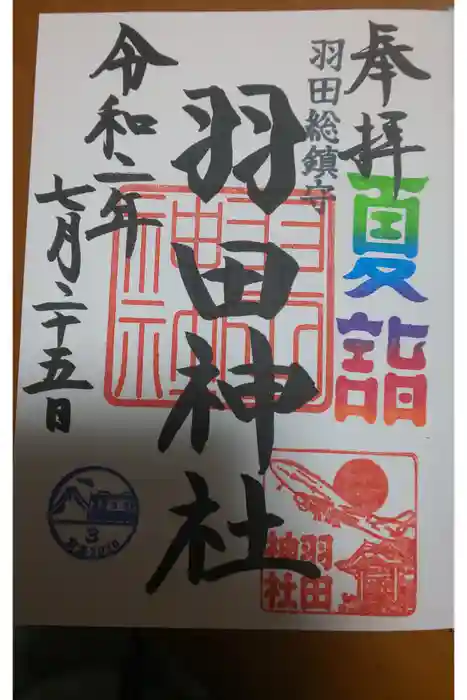 奉拝
夏詣
羽田総鎮守
羽田神社
令和二年
七月二十五日
羽田
神社
羽田
神社
3